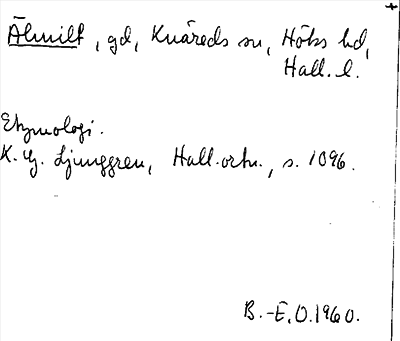 Älmilt, gd, Knäreds sn, Höks hd,
Hall. l.
Etymologi.
K. G. Ljunggren, Hall. ortn., s. 1096.
B.-E. O. 1960.